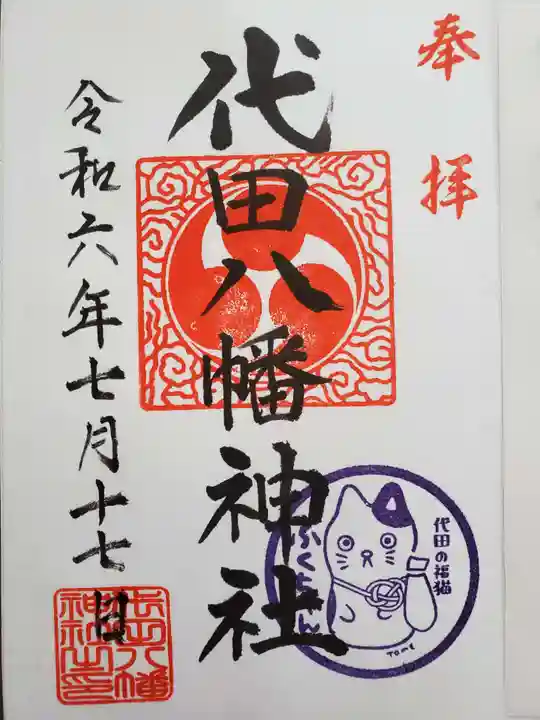 奉拝
代田八幡神社
令和六年七月十七日
代田の福猫
ふくちゃん
Tome
代田八幡神社之印